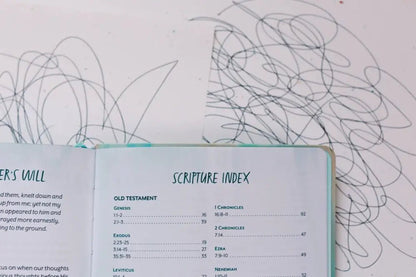 ER'S WILL
d them, knelt down and
up from me; yet not my
n appeared to him and
rayed more earnestly,
ng to the ground.
us on when our thoughts
SCRIPTURE INDEX
OLD TESTAMENT
GENESIS
1:1-2 16
2:1-3 39
EXODUS
2:23-25 19
3:14-15 27
33:31-33 33
LEVITICUS
1 CHRONICLES
16:8-11 92
2 CHRONICLES
7:14 47
EZRA
7:9-10 49
NEHEMIAH